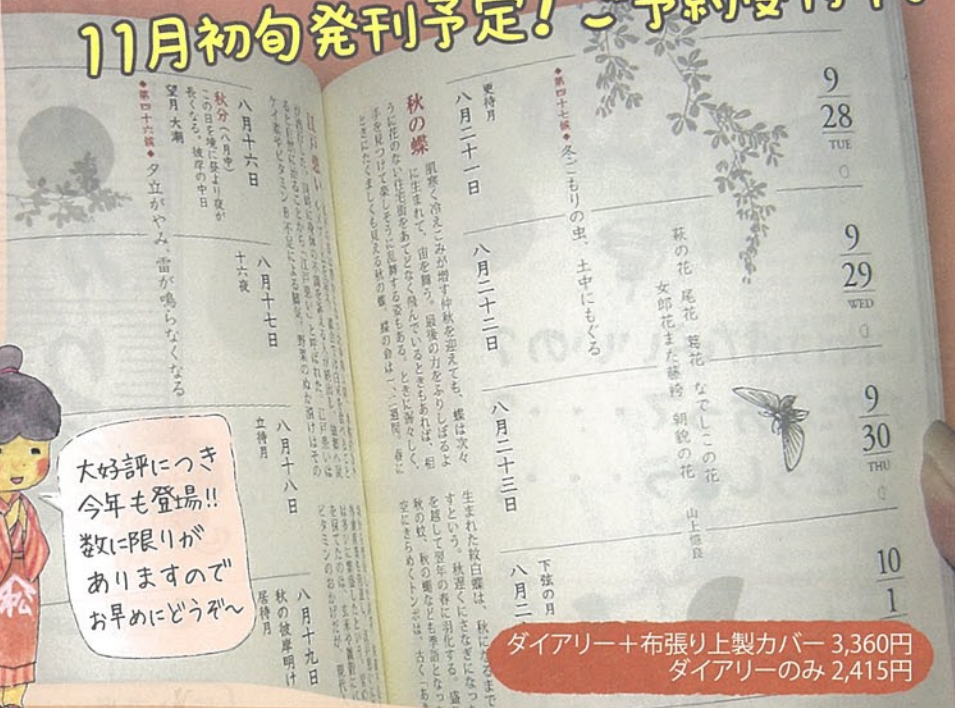 11月初旬発刊予定!ご予約受付中
9
28
TUE
9
29
WED
9
30
THU
10
1
萩の花 尾花 葛花 なでしこの花
女郎花また藤袴 朝貌の花
山上憶良
◆第四十七候◆冬ごもりの虫、土中にもぐる
更待月
八月二十一日
八月二十二日
八月二十三日
下弦の月
八月二
秋の蝶
肌寒く冷えこみが増す仲秋を迎えても、蝶は次々
に生まれて、宙を舞う。最後の力をふりしぼるよ
うに花のない住宅街をあてどなく飛んでいるときもあれば、相
手を見つけて楽しそうに乱舞する姿もある。ときに弱々しく、
ときにたくましくも見える秋の蝶。蝶の命は一、二週間。春に
生まれた紋白蝶は、秋になるまで
すという。秋遅くにさなぎになっ
を越して翌年の春に羽化する。
秋の蚊、秋の蠅なども季語となっ
空にきらめくトンボは、古く「あき
江戸患い
八月十六日
秋分(八月中)
この日を境に昼より夜が
長くなる。彼岸の中日
望月 大潮
◆第四十六候◆夕立がやみ、雷が鳴らなくなる
八月十七日
十六夜
八月十八日
立待月
八月十九日
秋の彼岸明け
居待月
大好評につき
今年も登場!!
数に限りが
ありますので
お早めにどうぞ〜
松
ダイアリー+布張り上製カバー 3,360円
ダイアリーのみ 2,415円